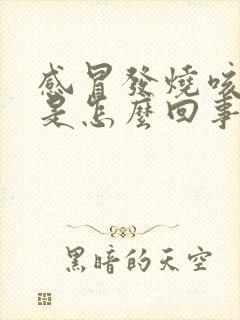 感冒發燒咳
是怎麼回事
黑暗的天空